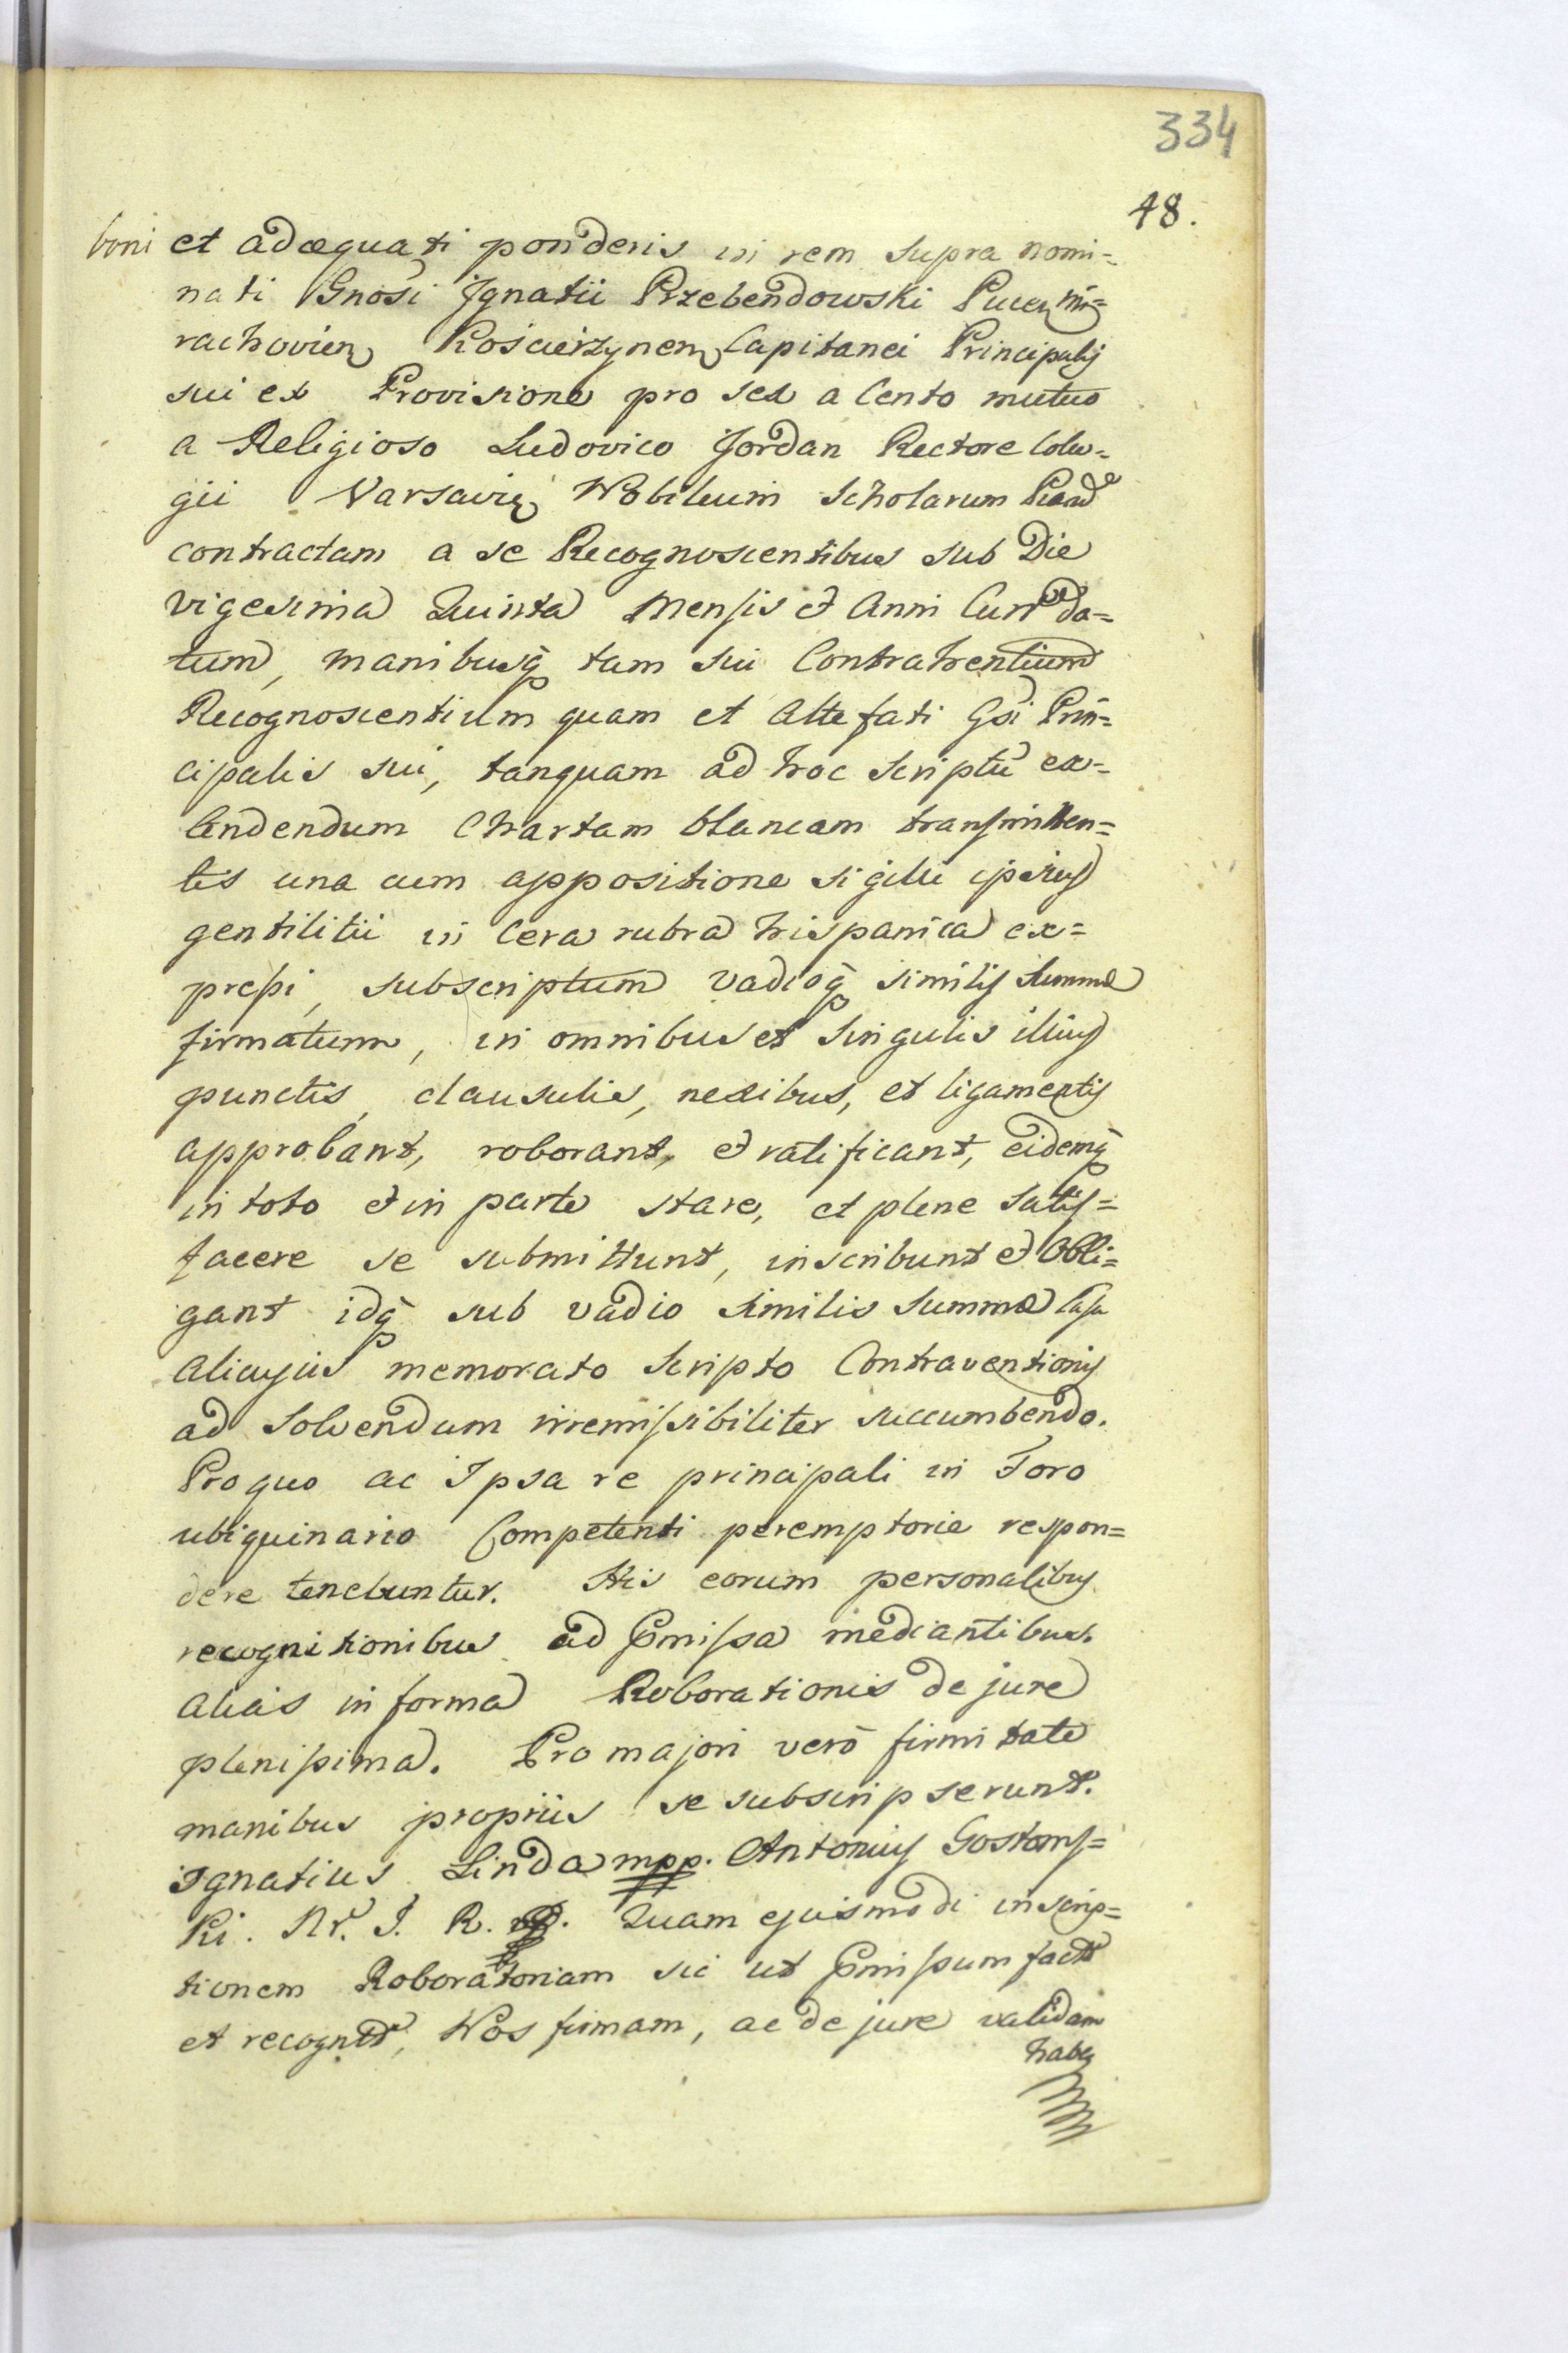 334
48.
boni et adæquati ponderis in rem supra nomi=
nati Gnosi Ignatii Przebendowski Pucen Mi=
rachovien Kościerzynen Capitanei Principalis
sui ex Provisione pro sex a Cento mutuo
a Religioso Ludovico Jordan Rectore Colle=
gii Varsaviẹ Nobilium Scholarum Piard
contractam a se Recognoscentibus sub Die
vigesima Quinta Mensis et Anni Curr da=
tum, manibusq̄ tam sui Contrahentium
Recognoscentium quam et Altefati Gsi Prin=
cipalis sui, tanquam ad hoc scriptū ex=
tendendum Chartam blancam transmitten=
tis una cum appositione sigilli ipsius
gentilitii in Cera rubra hispanica ex=
pressi, subscriptum vadioq̄ similis Summæ
firmatum, in omnibus et singulis illius
punctis, clausulis, nexibus, et ligamentis
approbant, roborant, et ratificant, eidemq̄
in toto et in parte stare, et plene satis=
facere se submittunt, inscribunt et Obli=
gant idq̄ sub vadio similis Summæ Casu
alicujus memorato scripto Contraventionis
ad Solvendum irremissibiliter succumbendo.
Pro quo ac Ipsa re principali in Foro
ubiquinario Competenti peremptorie respon=
dere tenebuntur. His eorum personalibus
recognitionibus ad Pmissa mediantibus.
alias in forma Roborationis de jure
plenissima. Pro majori verò firmitate
manibus propriis se subscripserunt.
Ignatius Linda mpp. Antonius Gostoms=
ki. Nr. J. R. Quam ejusmodi inscrip=
tionem Roboratoriam sic ut Pmissum fact
et recognit, Nos firmam, ac de jure validam
habe